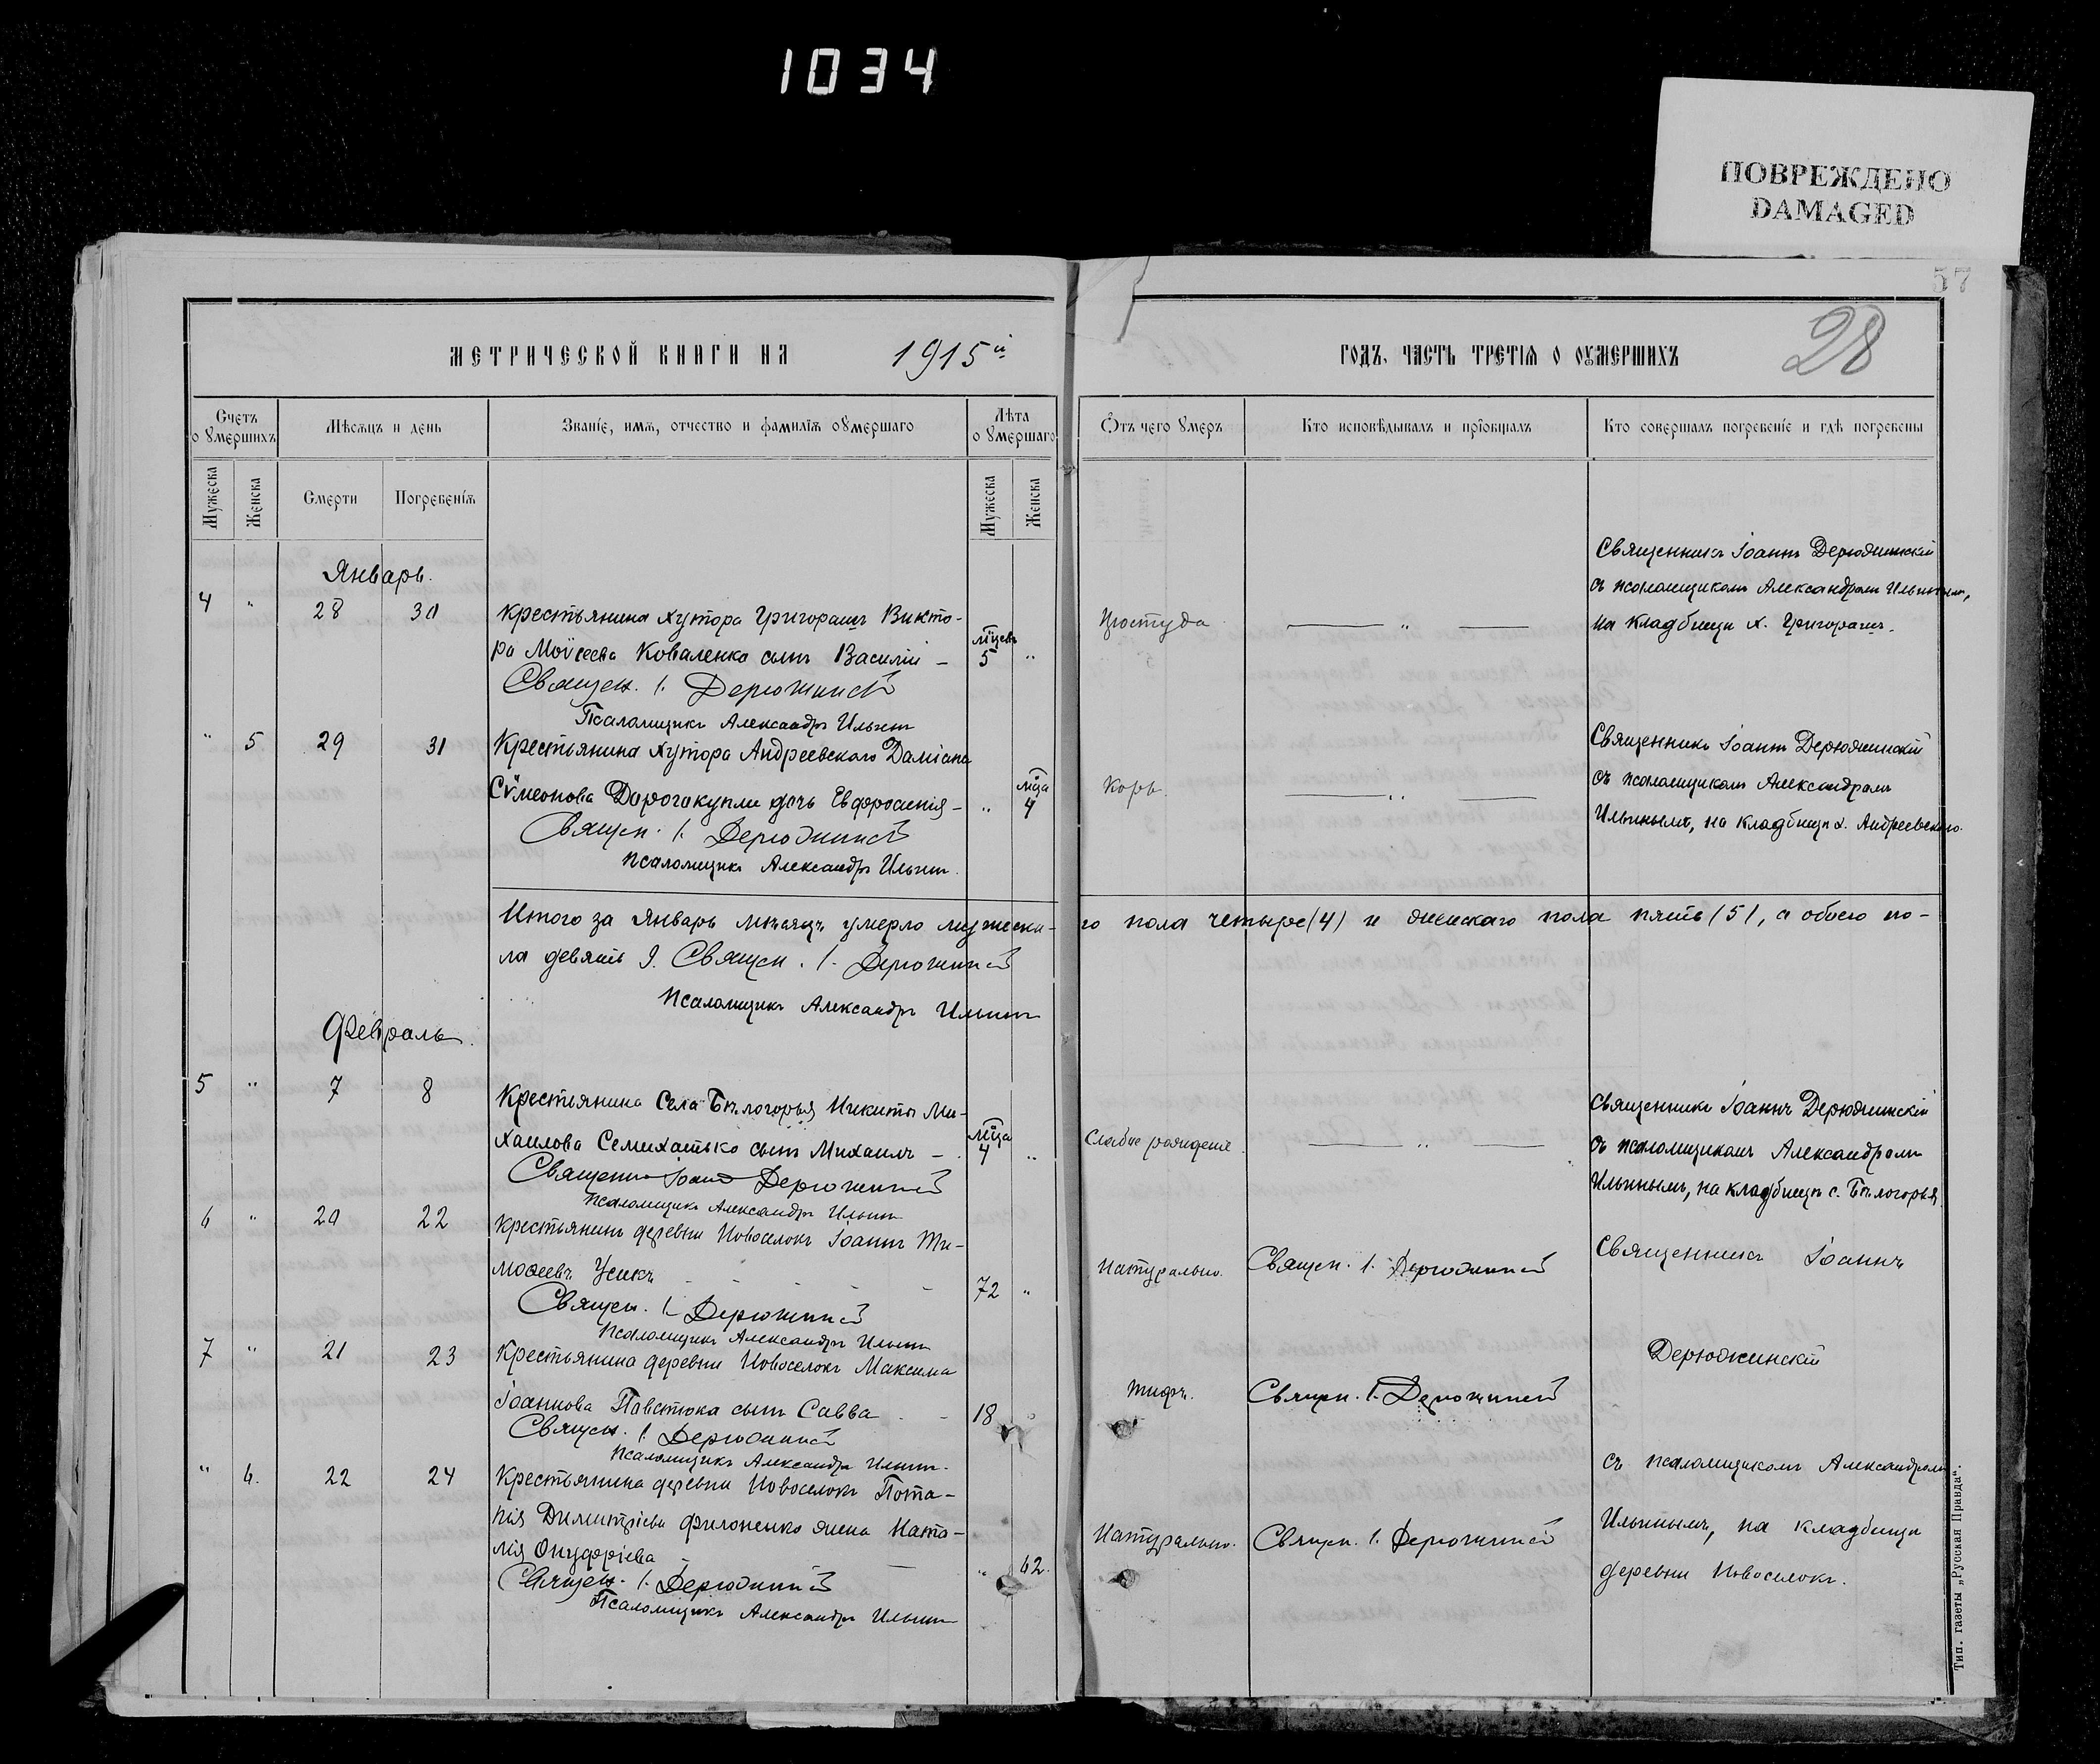 1034
ПОВРЕЖДЕНО
DAMAGED
57
28
МЕТРИЧЕСКОЙ КНИГИ НА 1915й
ГОДЪ, ЧАСТЬ ТРЕТІЯ О ОУМЕРШИХЪ
Счетъ оумершихъ
Мѣсяцъ и день
Званіе, имя, отчество и фамилія оумершаго
Лѣта оумершаго
Отъ чего умеръ
Кто исповѣдывалъ и пріобщалъ
Кто совершалъ погребеніе и гдѣ погребены
Мужеска
Женска
Смерти
Погребенія
Мужеска
Женска
Январь.
4 " 28 30
Крестьянина хутора Григорашъ Викто-
ра Моѵсеева Коваленко сынъ Василій –
мѣцевъ 5 "
Священ. І. Дерюжинскій
Псаломщикъ Александръ Ильинъ
Простуда
"
Священникъ Іоаннъ Дерюжинскій
съ псаломщикомъ Александромъ Ильинымъ,
на кладбищѣ х. Григорашъ.
" 5 29 31
Крестьянина хутора Андреевскаго Даміана
Сѵмеонова Дорогокупли дочь Евфросинія –
" мѣца 4
Священ. І. Дерюжинскій
Псаломщикъ Александръ Ильинъ.
Корь.
"
Священникъ Іоаннъ Дерюжинскій
съ псаломщикомъ Александромъ
Ильинымъ, на кладбищѣ х. Андреевскаго.
Итого за Январь мѣсяцъ умерло мужеска-
го пола четыре (4) и женскаго пола пять (5), а обоего по-
ла девять 9. Священ. І. Дерюжинскій
Псаломщикъ Александръ Ильинъ
Февраль.
5 " 7 8
Крестьянина села Бѣлогорья Никиты Ми-
хаилова Семихатько сынъ Михаилъ –
мѣца 4 "
Священникъ Іоаннъ Дерюжинскій
Псаломщикъ Александръ Ильинъ
Слабое рожденіе.
"
Священникъ Іоаннъ Дерюжинскій
съ псаломщикомъ Александромъ
Ильинымъ, на кладбищѣ с. Бѣлогорья
6 " 20 22
Крестьянинъ деревни Новоселокъ Іоаннъ Ти-
моѳеевъ Усикъ
72 "
Священ. І. Дерюжинскій
Псаломщикъ Александръ Ильинъ
Натурально.
Священ. І. Дерюжинскій
Священникъ Іоаннъ
7 " 21 23
Крестьянина деревни Новоселокъ Максима
Іоаннова Павлюка сынъ Савва
18
Священ. І. Дерюжинскій
Псаломщикъ Александръ Ильинъ.
Тифъ.
Священ. І. Дерюжинскій
Дерюжинскій
" 6. 22 24
Крестьянина деревни Новоселокъ Пота-
пія Димитріева Филоненко жена Ната-
лія Онуфріева
" 62.
Священ. І. Дерюжинскій
Псаломщикъ Александръ Ильинъ
Натурально.
Священ. І. Дерюжинскій
съ псаломщикомъ Александромъ
Ильинымъ, на кладбищѣ
деревни Новоселокъ.
Тип. газеты „Русская Правда".